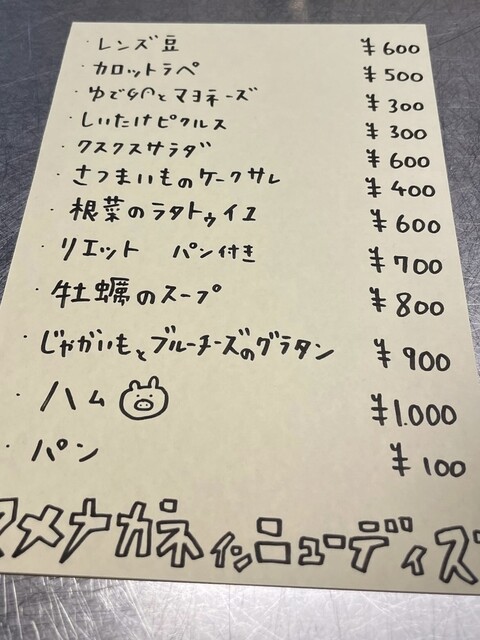 ・レンズ豆 ¥600
・カロットラペ ¥500
・ゆで卵とマヨネーズ ¥300
・しいたけピクルス ¥300
・クスクスサラダ ¥600
・さつまいものケークサレ ¥400
・根菜のラタトゥイユ ¥600
・リエット パン付き ¥700
・牡蠣のスープ ¥800
・じゃがいもとブルーチーズのグラタン ¥900
・ハム ¥1.000
・パン ¥100
メナカネ インニューディズ